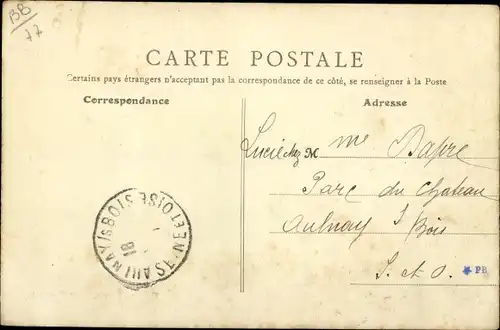 BB
77
CARTE POSTALE
Certains pays étrangers n'acceptant pas la correspondance de ce côté, se renseigner à la Poste
Correspondance
Adresse
Lucie chez Mme Dapre
Parc du Chateau
Aulnay s/ Bois
S. et O.
PB
AULNAY /S BOIS
SEINE ET OISE
18